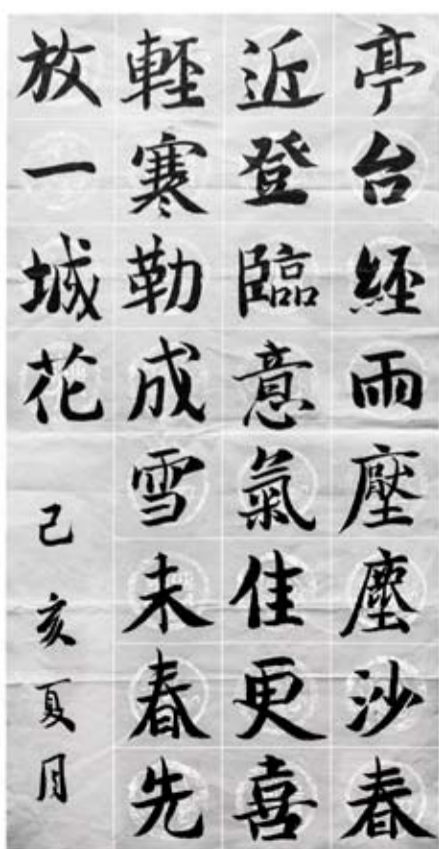 亭台經雨壓塵沙春
近登臨意氣佳更喜
輕寒勒成雪未春先
放一城花
己亥夏月